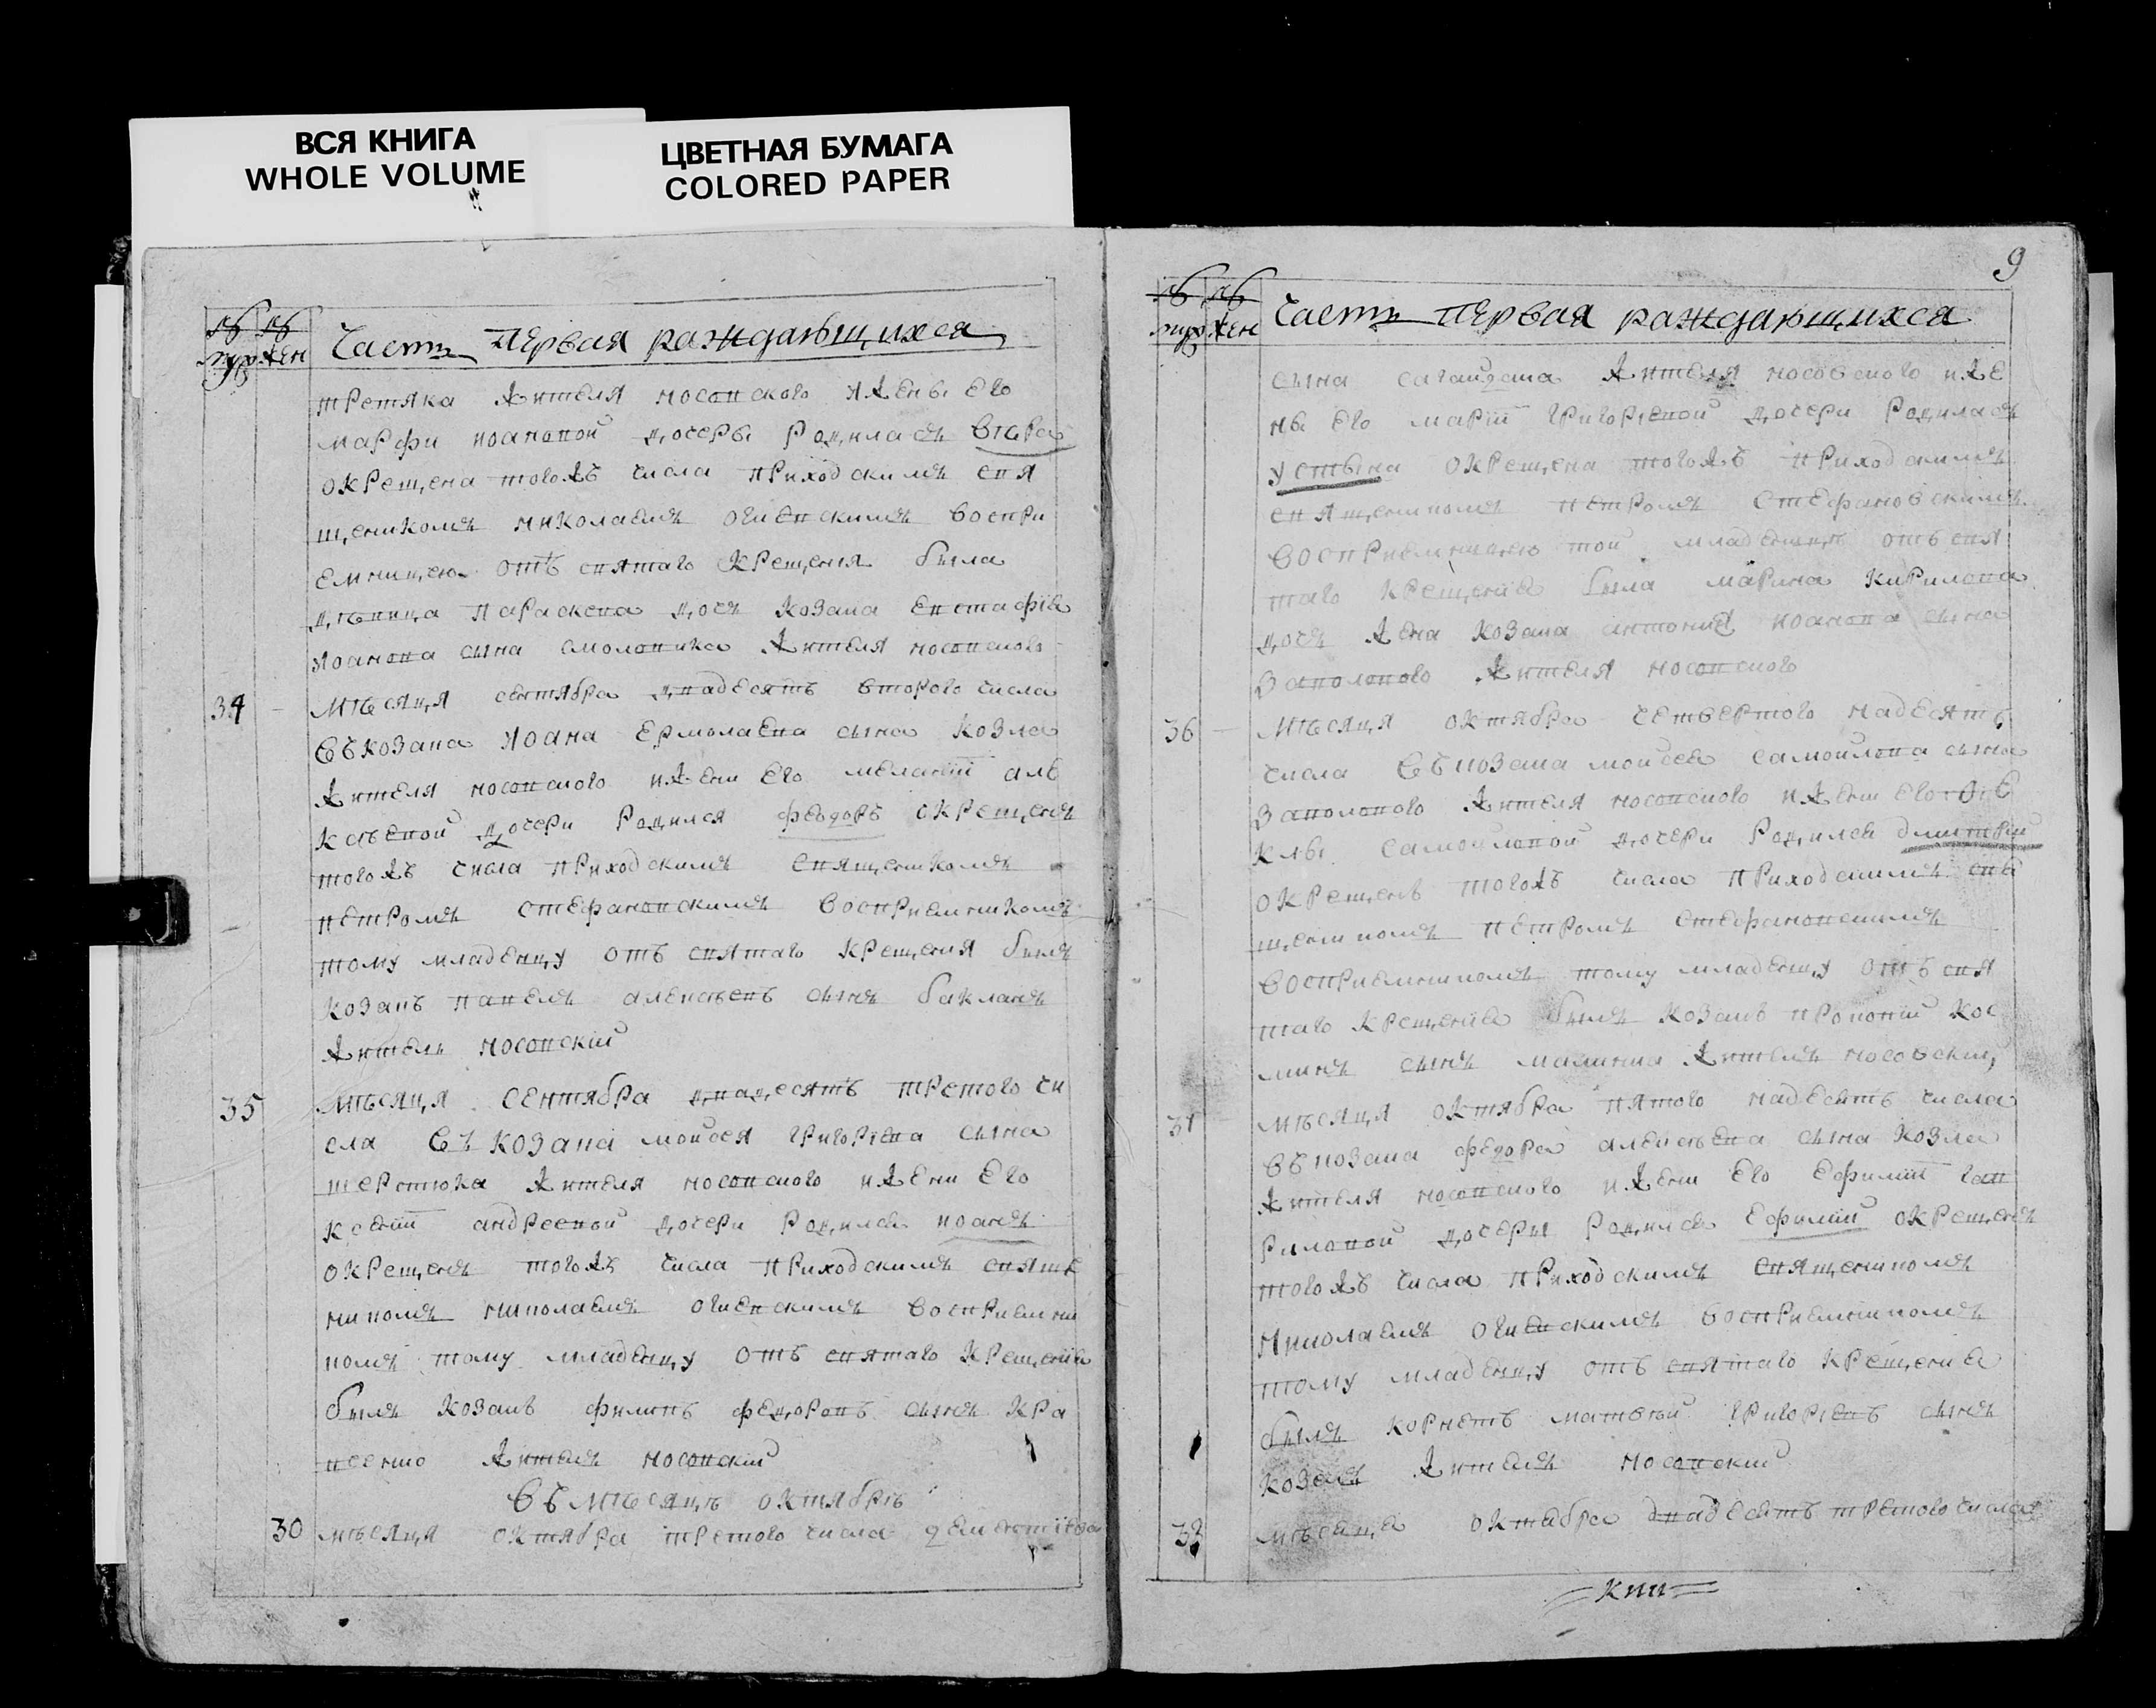 ВСЯ КНИГА
WHOLE VOLUME
ЦВЕТНАЯ БУМАГА
COLORED PAPER
№ муж № жен Часть первая раждающихся
третяка жителя носовского и жены его
марфи иоановой дочеры родилась вѣра
окрещена тогожъ числа приходскимъ свя
щеникомъ николаемъ огиевскимъ воспри
емницею отъ святаго крещения была
дѣвица параскева дочь козака евстафіа
иоанова сына смоловика жителя носовского
34 мѣсяця сентября двадесять второго числа
въ козака иоана ермолаева сына козла
жителя носовского и жени его меланіи алѣ
ксѣевой дочери родился феодоръ окрещенъ
тогожъ числа приходскимъ священикомъ
петромъ стефановскимъ восприемникомъ
тому младенцу отъ святаго крещения былъ
козакъ павелъ алексѣевъ сынъ бакланъ
житель носовскій
35 мѣсяця сентября двадесять третого чи
сла въ козака моисея григоріева сына
терстюка жителя носовского и жени его
ксеніи андреевой дочери родился иоанъ
окрещенъ тогожъ числа приходскимъ свяще
никомъ николаемъ огиевскимъ восприемни
комъ тому младенцу отъ святаго крещеніа
былъ козакъ филипъ федоровъ сынъ кра
всенко житель носовскій
въ мѣсяцѣ октябрѣ
30 мѣсяця октября третого числа
9
№ муж № жен Часть первая раждающихся
сына сагайдака жителя носовского и же
ны его маріи григоріевой дочери родилась
устына окрещена тогожъ приходскимъ
священикомъ петромъ стефановскимъ
восприемницею той младенице отъ свя
таго крещеніа была марина кирилова
дочь жена козака антония иоанова сына
заполового жителя носовского
36 мѣсяця октября четвертого надесять
числа въ козака мойсея самойлова сына
заполового жителя носовского и жени его фе
клы самойловой дочери родился димитрій
окрещенъ тогожъ числа приходскимъ свя
щеникомъ петромъ стефановскимъ
восприемникомъ тому младенцу отъ свя
таго крещеніа былъ козакъ прокопій кос
минъ сынъ малишка житель носовский
37 мѣсяця октября пятого надесять числа
въ козака федора алексѣева сына козла
жителя носовского и жени его ефиміи гав
риловой дочеры родился ефимій окрещенъ
тогожъ числа приходскимъ священикомъ
николаемъ огиевскимъ восприемникомъ
тому младенцу отъ святаго крещениа
былъ корнетъ матвѣй григоріевъ сынъ
козелъ житель носовский
38 мѣсяца октабра двадесять третого числа
кпп